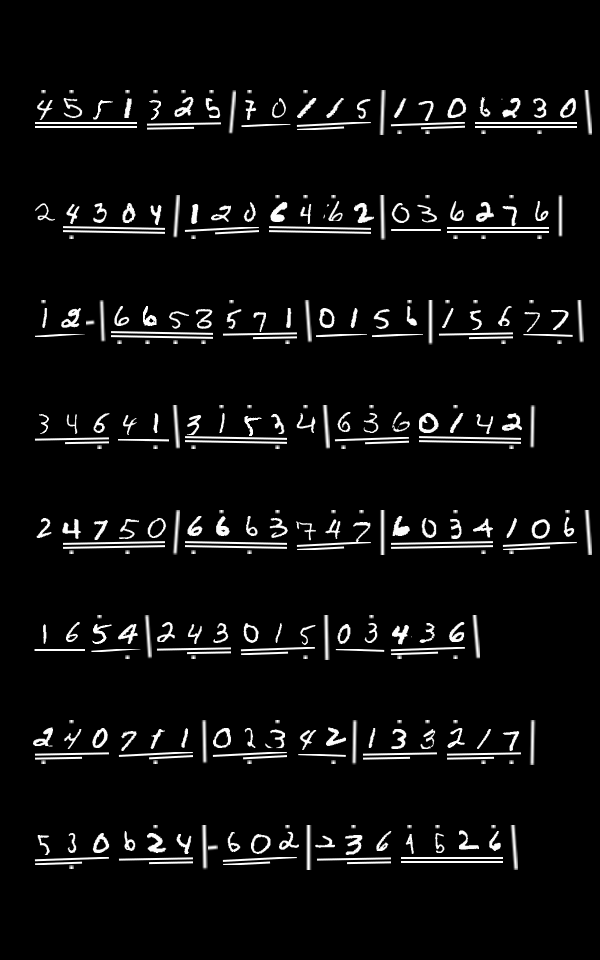 4551 325|70115|1706230|
24304|1206462|036276|
12-|6653571|0156|15677|
34641|31534|6360142|
24750|6663747|6034106|
1654|243015|03436|
240711|02342|133217|
530624|-602|-2361526|